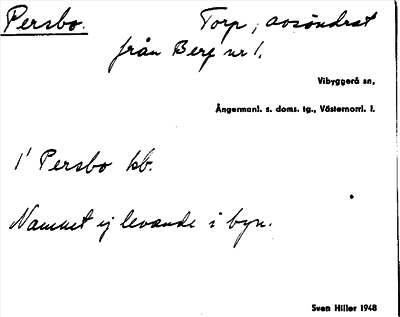 Persbo. Torp, avsöndrat
från Berg nr 1.
Vibyggerå sn,
Ångermanl. s. doms. tg., Västernorrl. l.
1' Persbo kb.
Namnet ej levande i byn.
Sven Hiller 1948